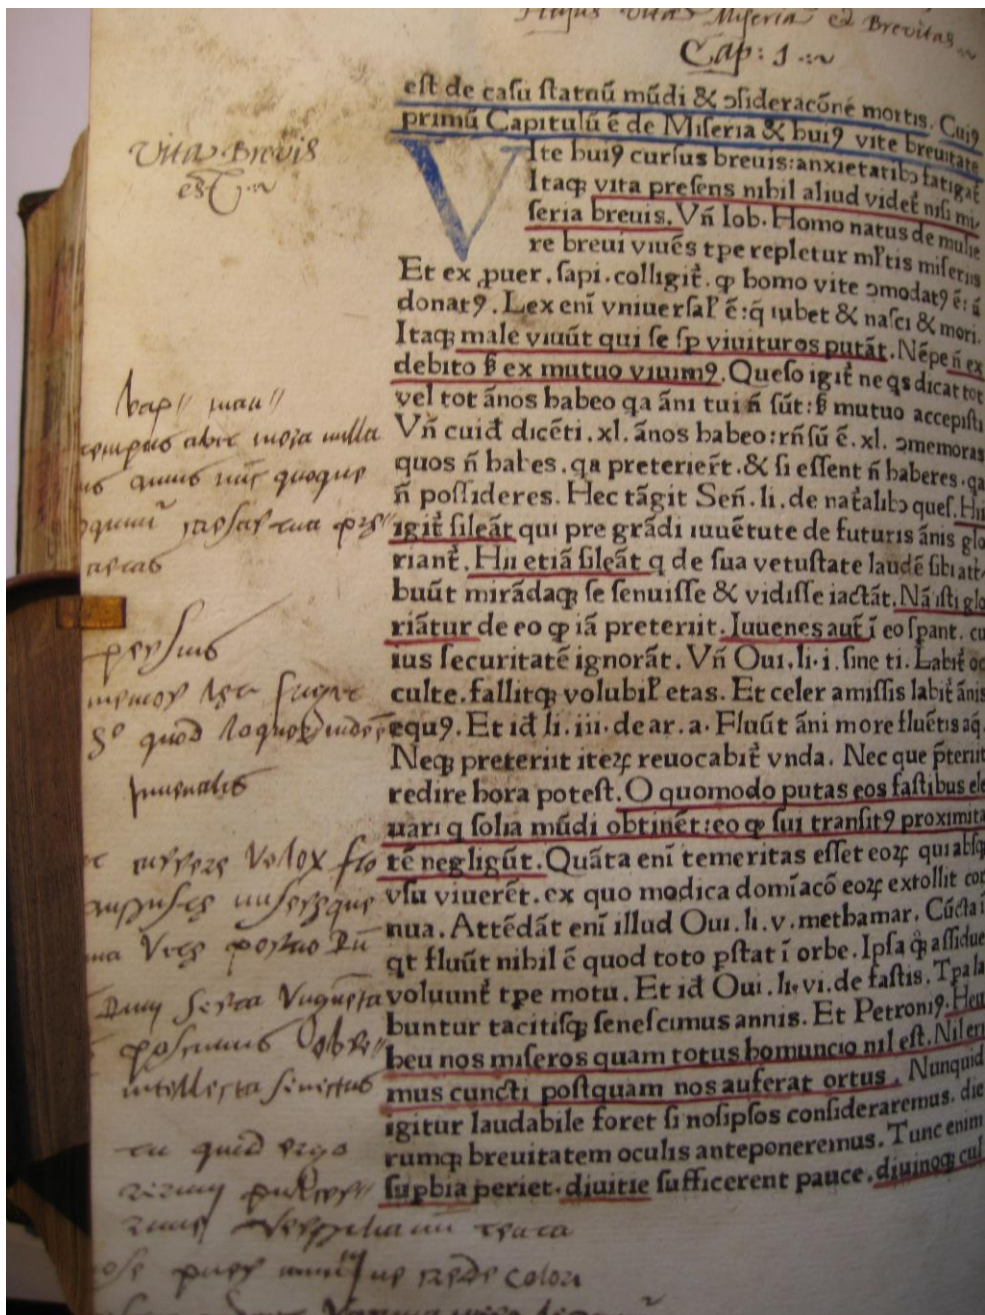 Huius Vitæ Miseria et Brevitas
Cap: 1
est de casu statuū mūdi & ↄsideracōne mortis. Cuiꝯ
primū Capitulū ē de Miseria & huiꝯ vite breuitate
Vita Brevis
est
VIte huiꝯ cursus breuis: anxietatibꝫ fatigat̄
Itaqꝫ vita presens nihil aliud videt̄ nisi mi
seria breuis. Vn̄ Iob. Homo natus de mulie
re breui viuēs tꝑe repletur ml̄tis miseriis
Et ex puer. sapi. colligit̄. ꝙ homo vite ↄmodatꝯ ē: ñ
donatꝯ. Lex enī vniuersal̄ ē: q̄ iubet & nasci & mori.
Itaqꝫ male viuūt qui se sꝑ viuituros putāt. Nēpe n̄ ex
debito s̄ ex mutuo viuimꝯ. Queso igit̄ ne qs dicat tot
vel tot ānos habeo qa āni tui n̄ sūt: s̄ mutuo accepisti
Vn̄ cuid̄ dicēti. xl. ānos habeo: rn̄sū ē. xl. ↄmemoras
quos n̄ habes. qa preterier̄t. & si essent n̄ haberes. qa
n̄ possideres. Hec tāgit Sen̄. li. de nat̄alibꝫ ques. Hii
igit̄ sileāt qui pre grādi iuuētute de futuris ānis glo
riant̄. Hii etiā sileāt q de sua vetustate laudē sibi att
buūt mirādaqꝫ se senuisse & vidisse iactāt. Nā isti glo
riātur de eo ꝙ iā preteriit. Iuuenes aut̄ ī eo spant. cu
ius securitatē ignorāt. Vn̄ Oui. li. i. sine ti. Labit̄ oc
culte. fallitqꝫ volubil̄ etas. Et celer amissis labit̄ ānis
equꝯ. Et id̄ li. iii. de ar. a. Fluūt āni more fluētis aq̄.
Neqꝫ preteriit iteꝝ reuocabit̄ vnda. Nec que p̄teriit
redire hora potest. O quomodo putas eos fastibus ele
uari q solia mūdi obtinēt: eo ꝙ sui transitꝯ proximita
tē negligūt. Quāta enī temeritas esset eoꝝ qui absqꝫ
vsu viuerēt. ex quo modica domīacō eoꝝ extollit cor
nua. Attēdāt enī illud Oui. li. v. methamar. Cūcta ī
qt fluūt nihil ē quod toto pstat ī orbe. Ipsa q̄ꝫ assidue
voluunt̄ tꝑe motu. Et id̄ Oui. li. vi. de fastis. Tꝑa la
buntur tacitisqꝫ senescimus annis. Et Petroniꝯ. Heu
heu nos miseros quam totus homuncio nil est. Nil eri
mus cuncti postquam nos auferat ortus. Nunquid
igitur laudabile foret si nosipsos consideraremus. die
rumqꝫ breuitatem oculis anteponeremus. Tunc enim
suꝑbia periet. diuitie sufficerent pauce. diuinoqꝫ cul
tempus abit mora nulla
annus quoque
persius
memor fugit
quod loquor inde
juvenalis
velox
dum serta unguenta
poscimus obre
intellecta senectus
tu quid ergo